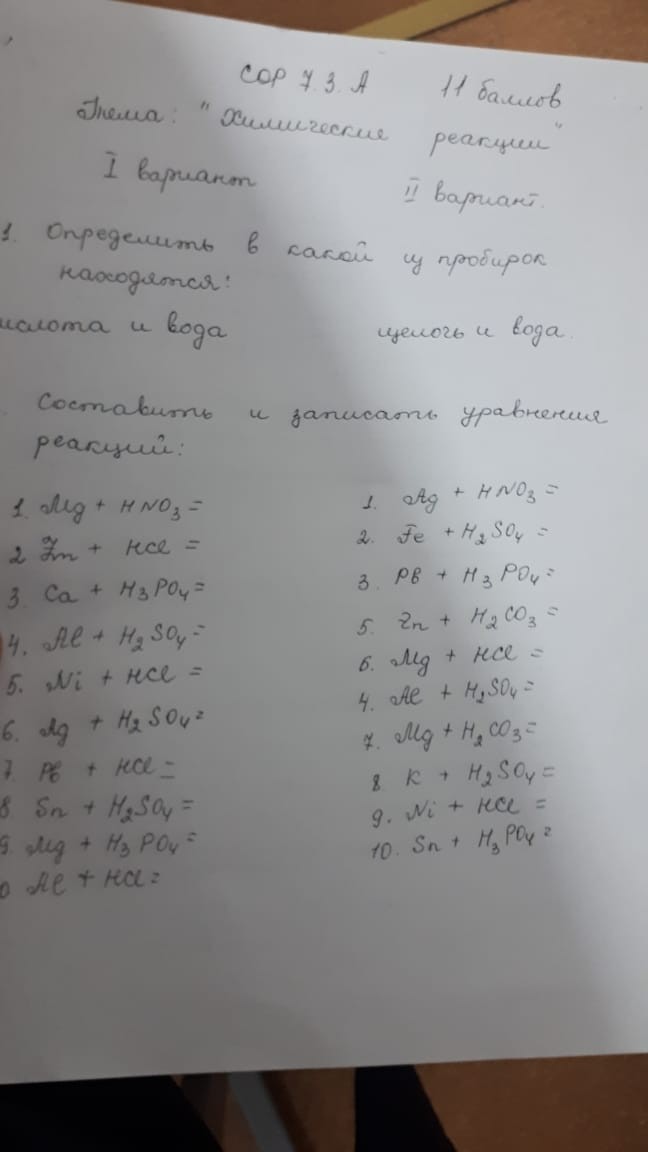 СОР 7.3.А 11 баллов
Тема: "Химические реакции"
I вариант II вариант.
1. Определить в какой из пробирок
находятся:
ислота и вода щелочь и вода.
. Составить и записать уравнения
реакций:
1. Mg + HNO3 = 1. Ag + HNO3 =
2 Zn + HCl = 2. Fe + H2SO4 =
3. Ca + H3PO4 = 3. Pb + H3PO4 =
4. Al + H2SO4 = 5. Zn + H2CO3 =
5. Ni + HCl = 6. Mg + HCl =
6. Ag + H2SO4 = 4. Al + H2SO4 =
7. Pb + HCl = 7. Mg + H2CO3 =
8 Sn + H2SO4 = 8 K + H2SO4 =
9. Mg + H3PO4 = 9. Ni + HCl =
0 Al + HCl = 10. Sn + H3PO4 =